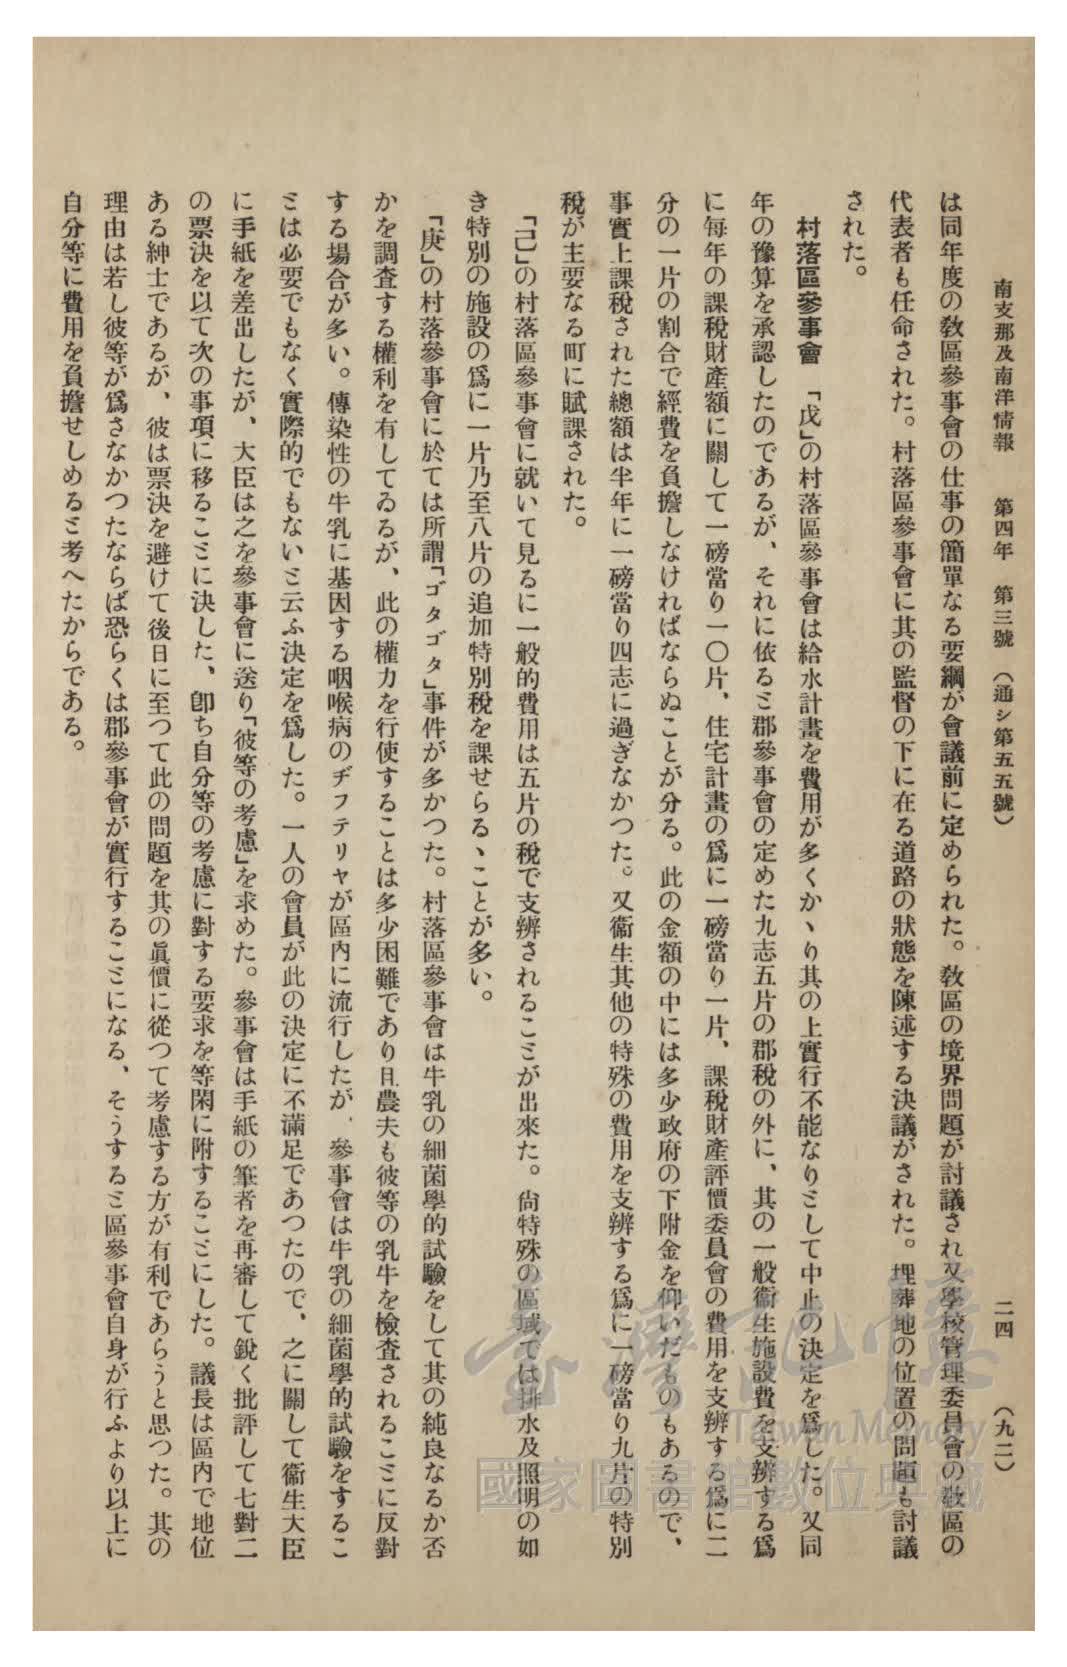 南支那及南洋情報　第四年　第三號　（通シ第五五號）　二四　（九二）
は同年度の敎區參事會の仕事の簡單なる要綱が會議前に定められた。敎區の境界問題が討議され又學校管理委員會の敎區の
代表者も任命された。村落區參事會に其の監督の下に在る道路の狀態を陳述する決議がされた。埋葬地の位置の問題も討議
された。
村落區參事會　「戊」の村落區參事會は給水計畫を費用が多くかゝり其の上實行不能なりミして中止の決定を爲した。又同
年の豫算を承認したのであるが、それに依るミ郡參事會の定めた九志五片の郡稅の外に、其の一般衞生施設費を支辨する爲
に每年の課稅財產額に關して一磅當り一〇片、住宅計畫の爲に一磅當り一片、課稅財產評價委員會の費用を支辨する爲に二
分の一片の割合で經費を負擔しなければならぬことが分る。此の金額の中には多少政府の下附金を仰いだものもあるので、
事實上課稅された總額は半年に一磅當り四志に過ぎなかつた。又衞生其他の特殊の費用を支辨する爲に一磅當り九片の特別
稅が主要なる町に賦課された。
「己」の村落區參事會に就いて見るに一般的費用は五片の稅で支辨されるこミが出來た。尙特殊の區域では排水及照明の如
き特別の施設の爲に一片乃至八片の追加特別稅を課せらるゝことが多い。
「庚」の村落參事會に於ては所謂「ゴタゴタ」事件が多かつた。村落區參事會は牛乳の細菌學的試驗をして其の純良なるか否
かを調査する權利を有してゐるが、此の權力を行使することは多少困難であり且農夫も彼等の乳牛を檢査されるこミに反對
する場合が多い。傳染性の牛乳に基因する咽喉病のヂフテリヤが區內に流行したが、參事會は牛乳の細菌學的試驗をするこ
ミは必要でもなく實際的でもないミ云ふ決定を爲した。一人の會員が此の決定に不滿足であつたので、之に關して衞生大臣
に手紙を差出したが、大臣は之を參事會に送り「彼等の考慮」を求めた。參事會は手紙の筆者を再審して銳く批評して七對二
の票決を以て次の事項に移るこミに決した、卽ち自分等の考慮に對する要求を等閑に附するこミにした。議長は區內で地位
ある紳士であるが、彼は票決を避けて後日に至つて此の問題を其の眞價に從つて考慮する方が有利であらうと思つた。其の
理由は若し彼等が爲さなかつたならば恐らくは郡參事會が實行するこミになる、そうするミ區參事會自身が行ふより以上に
自分等に費用を負擔せしめるミ考へたからである。
臺灣記憶
Taiwan Memory
國家圖書館數位典藏